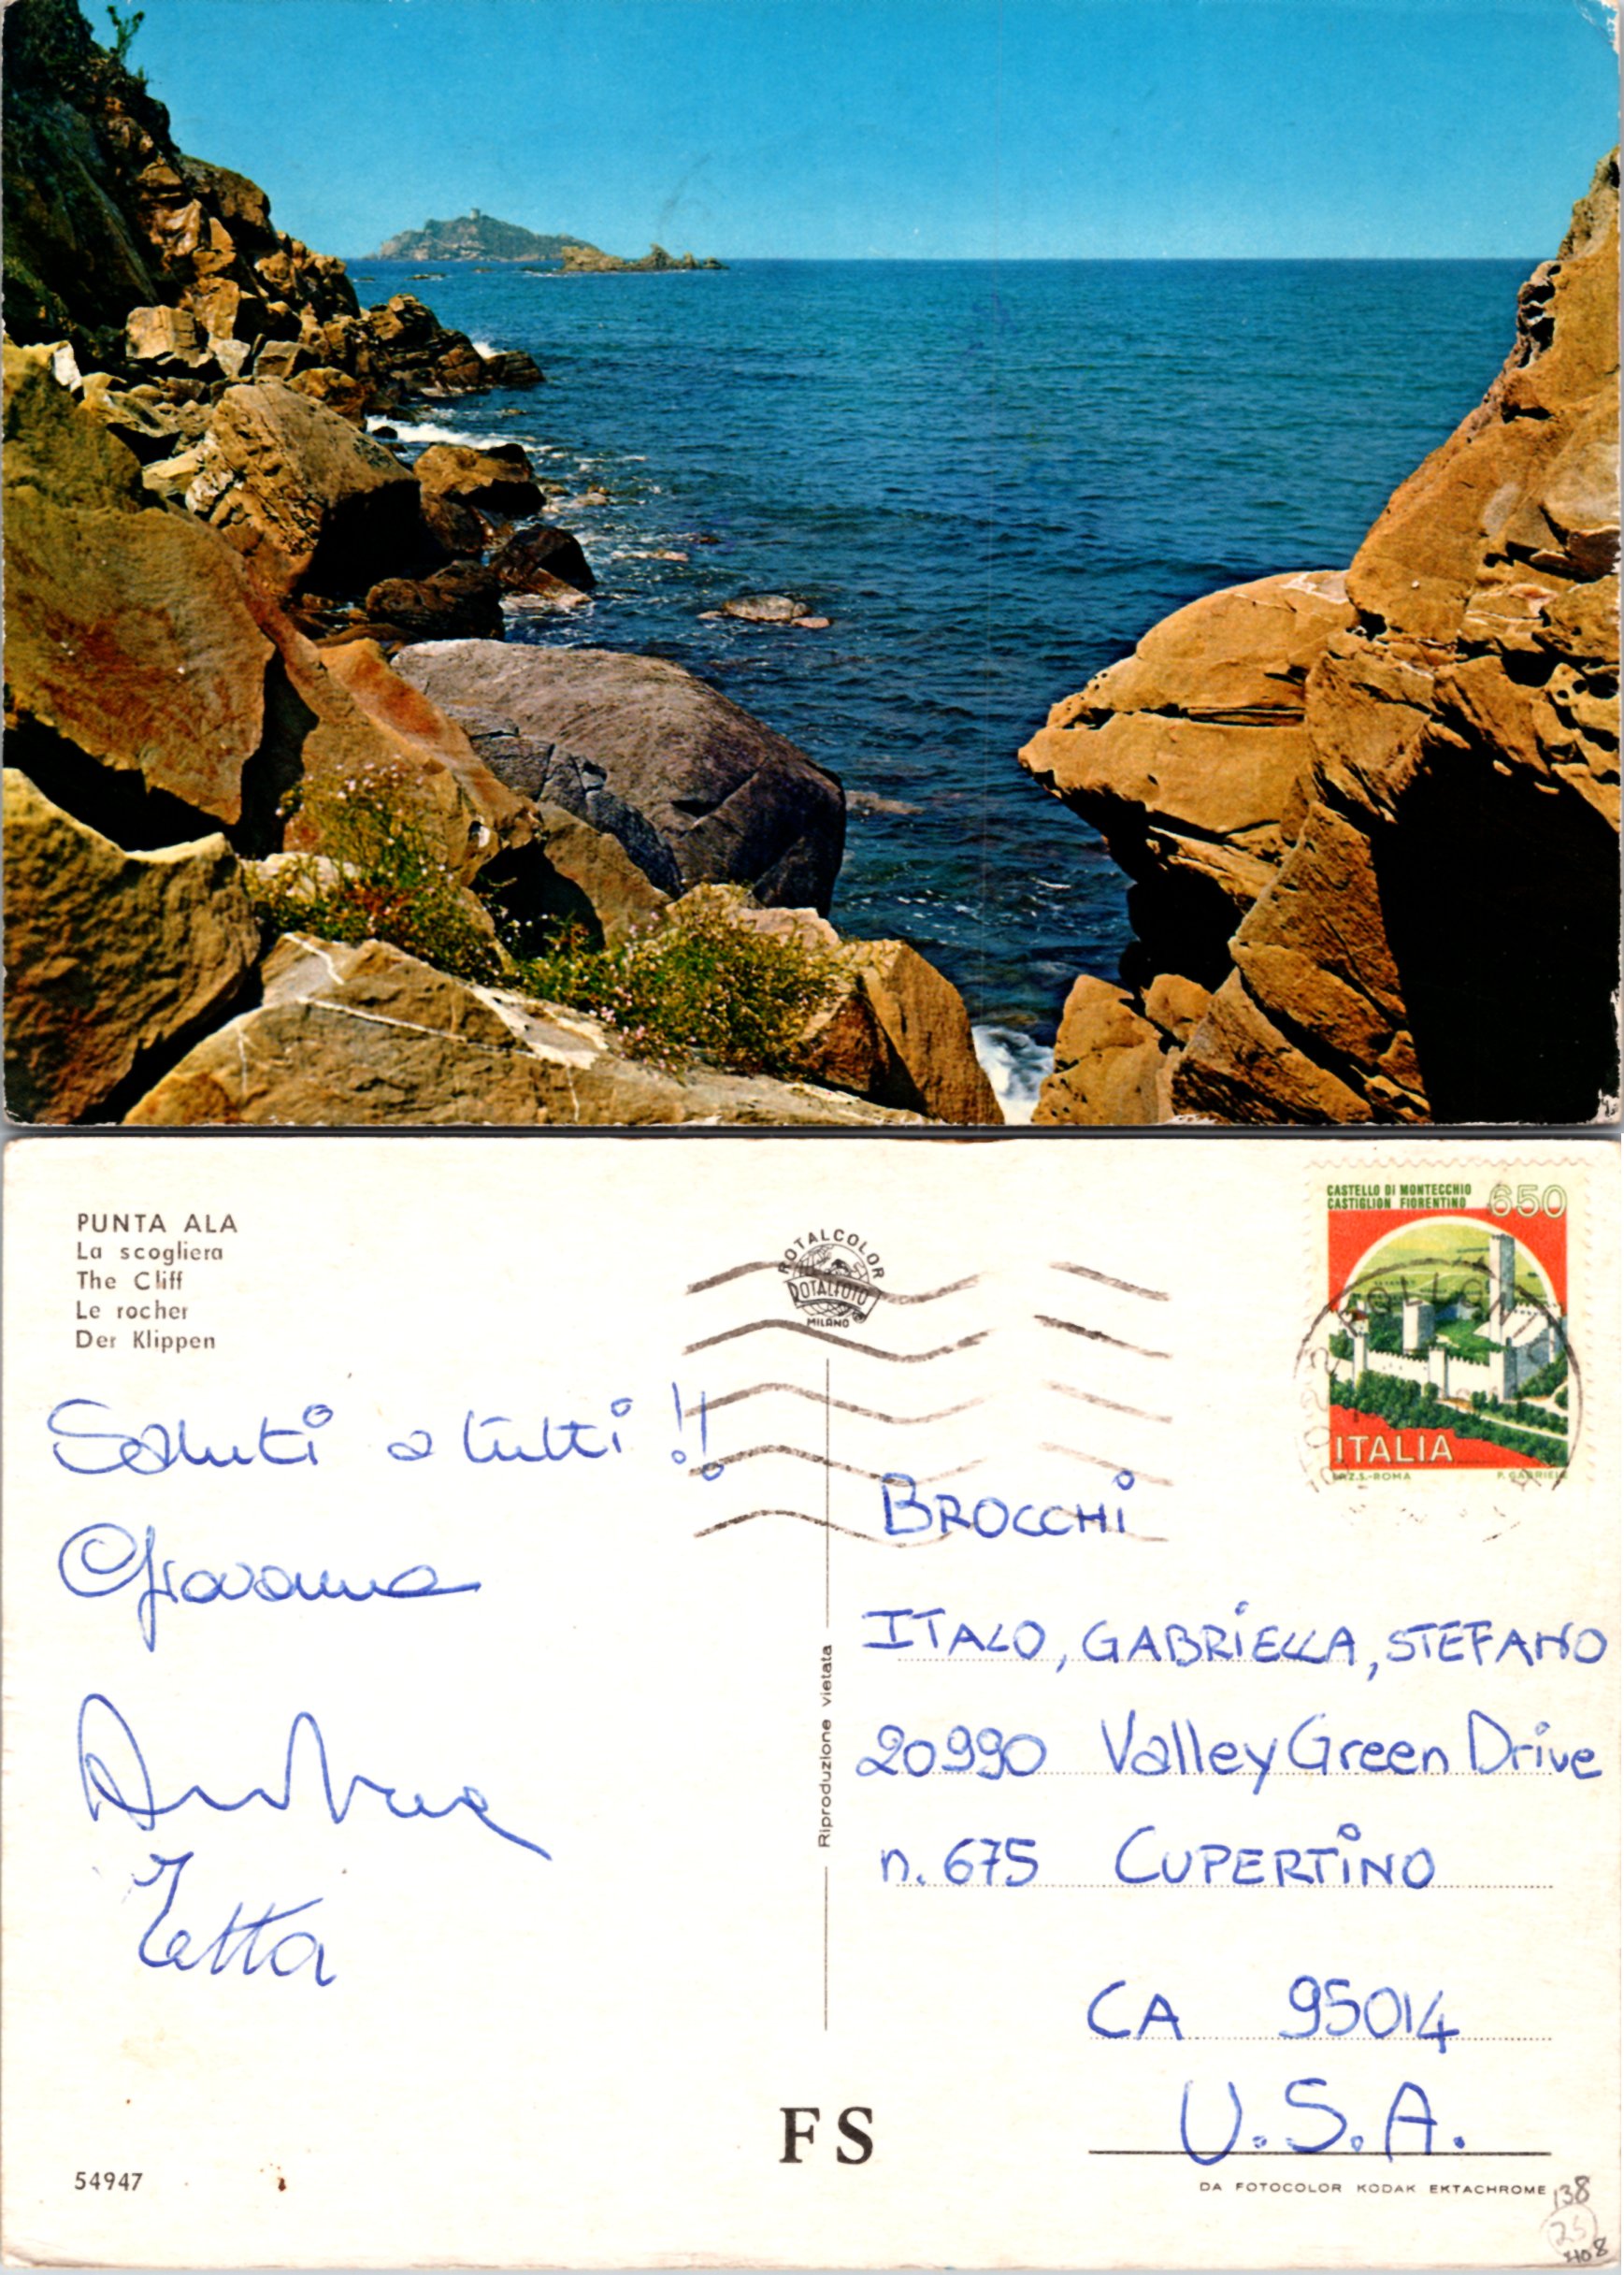 PUNTA ALA
La scogliera
The Cliff
Le rocher
Der Klippen
Saluti a tutti !!
Giovanna
Andrea
Zetta
54947
ROTALCOLOR
ROTALFOTO
MILANO
Riproduzione vietata
FS
CASTELLO DI MONTECCHIO 650
CASTIGLION FIORENTINO
ITALIA
I.P.Z.S.-ROMA P. GABRIELE
58022 FOLLONICA
BROCCHI
ITALO, GABRIELLA, STEFANO
20990 Valley Green Drive
n. 675 CUPERTINO
CA 95014
U.S.A.
DA FOTOCOLOR KODAK EKTACHROME
138
25